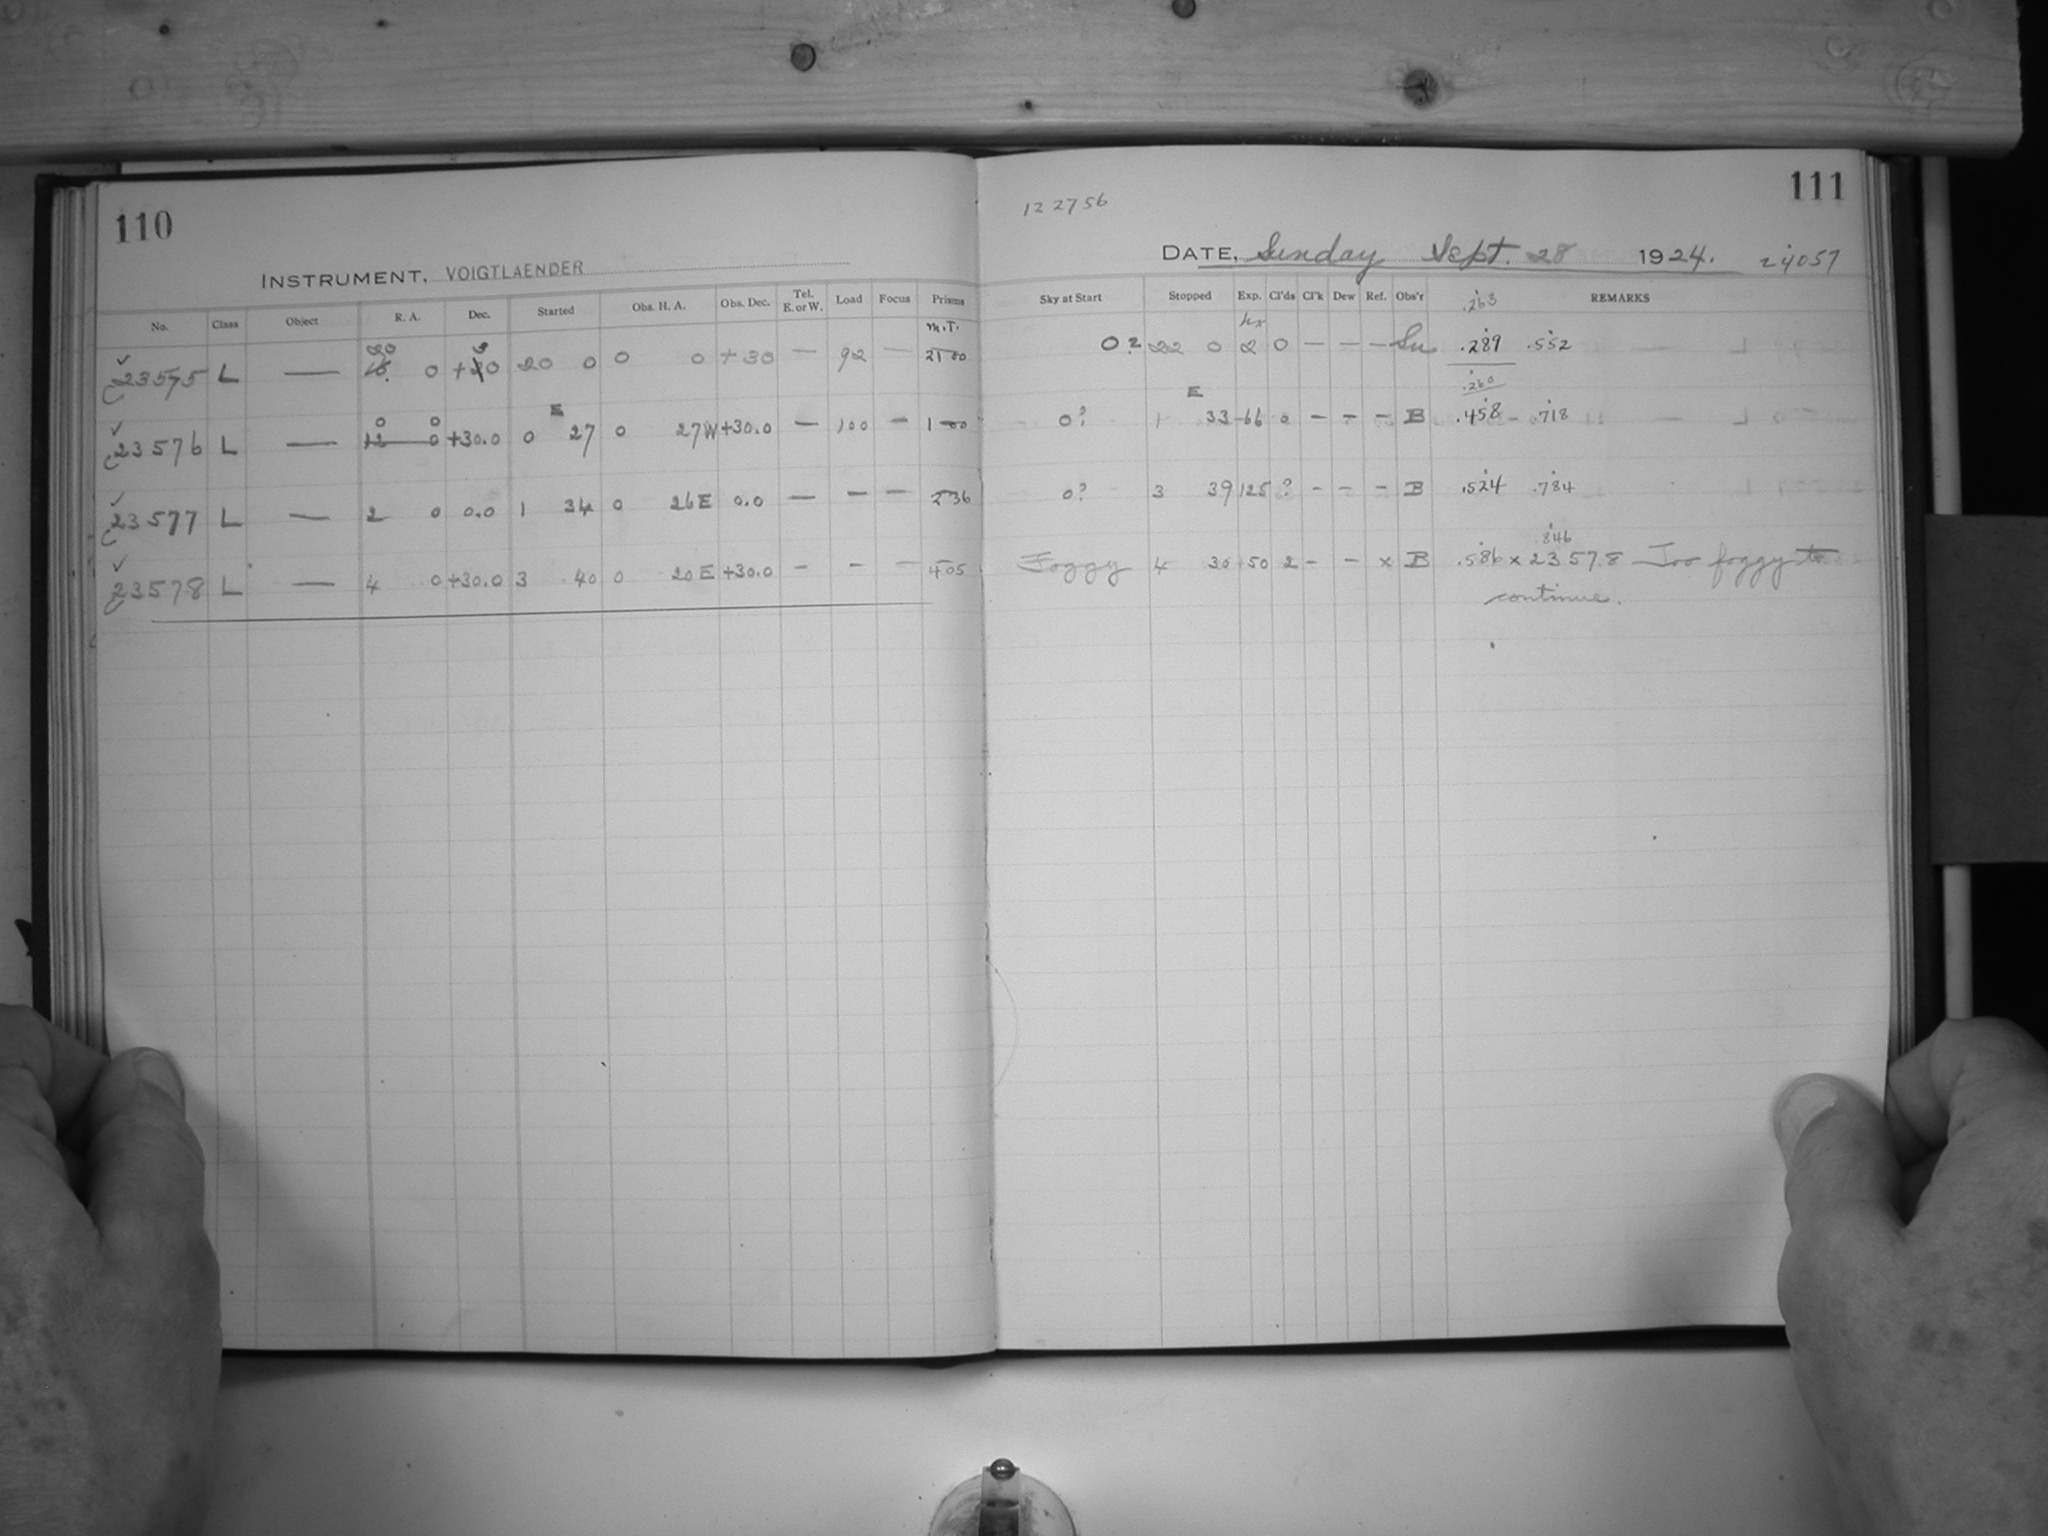 110
INSTRUMENT, VOIGTLAENDER
No. Class Object R. A. Dec. Started Obs. H. A. Obs. Dec. Tel. E. or W. Load Focus Prisms
M.T.
20 3
✓ C23575 L — 18. 0 +20 20 0 0 0 +30 — 92 — 21 00
0 0 E
✓ C23576 L — 12 0 +30.0 0 27 0 27W +30.0 — 100 — 1 00
✓ C23577 L — 2 0 0.0 1 34 0 26E 0.0 — — — 2 36
✓ C23578 L — 4 0 +30.0 3 40 0 20E +30.0 — — — 4 05
111
122756
DATE, Sunday Sept. 28 1924. 24057
Sky at Start Stopped Exp. Cl'ds Cl'k Dew Ref. Obs'r REMARKS
.263
hr
0? 22 0 2 0 — — — Su .289 .552
.260
E
0? 1 33 66 0 — — — B .458 .718
0? 3 39 125 ? — — — B .524 .784
.846
Foggy 4 30 50 2 — — x B .586 x 23578 Too foggy to
continue.